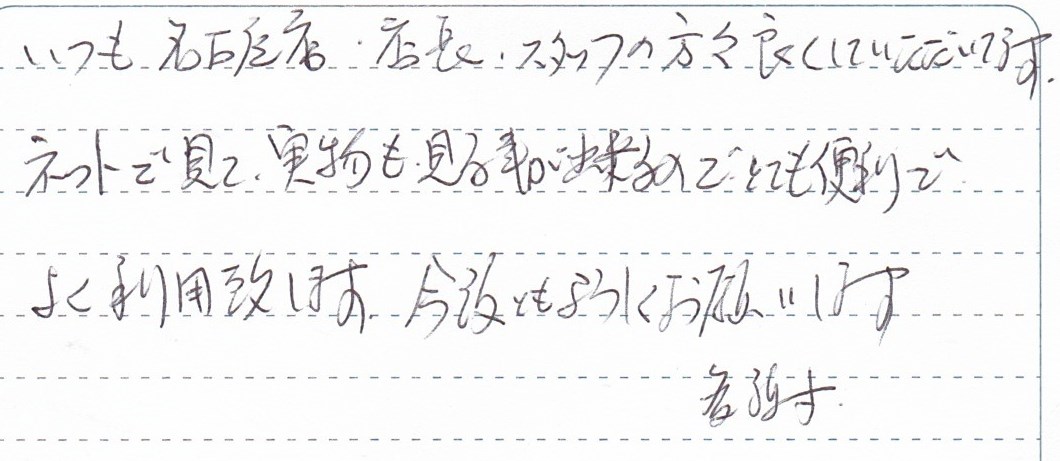 いつも名古屋店・店長・スタッフの方々良くしていただいてます.
ネットで見て、実物も見る事が出来るのでとても便利で
よく利用致します. 今後ともよろしくお願いします